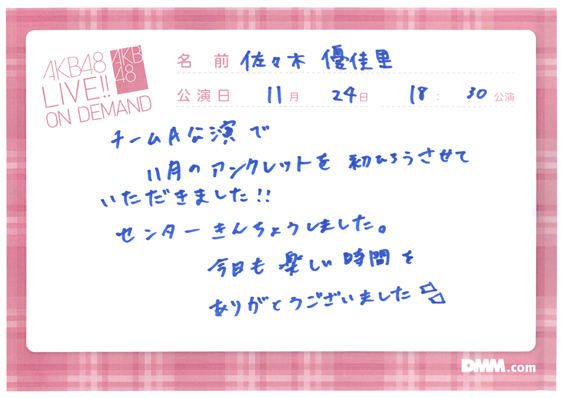 AKB48
LIVE!!
ON DEMAND
AKB
48
名前 佐々木 優佳里
公演日 11月 24日 18:30公演
チームA公演で
11月のアンクレットを 初ひろうさせて
いただきました!!
センター きんちょうしました。
今日も 楽しい 時間を
ありがとうございました
DMM.com